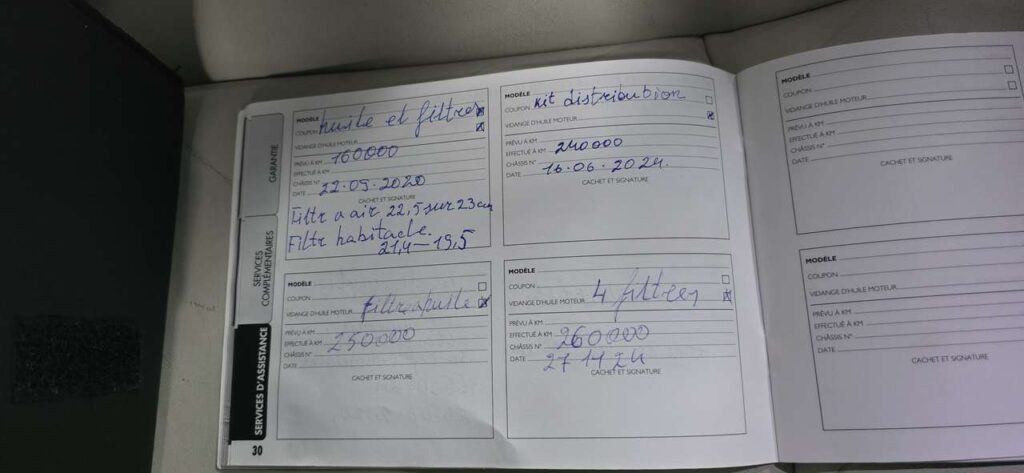 GARANTIE
SERVICES
COMPLÉMENTAIRES
SERVICES D'ASSISTANCE
MODÈLE
huile et filtres
COUPON
VIDANGE D'HUILE MOTEUR
PRÉVU À KM 160000
EFFECTUÉ À KM
CHÂSSIS N°
DATE 22.09.2020
CACHET ET SIGNATURE
Filtr a air 22,5 sur 23 cm
Filtr habitacle.
21,4-19,5
MODÈLE
COUPON kit distribution
VIDANGE D'HUILE MOTEUR
PRÉVU À KM
EFFECTUÉ À KM 240000
CHÂSSIS N°
DATE 16.06.2024.
CACHET ET SIGNATURE
MODÈLE
COUPON
VIDANGE D'HUILE MOTEUR
PRÉVU À KM
EFFECTUÉ À KM 250000
CHÂSSIS N°
DATE
CACHET ET SIGNATURE
MODÈLE
COUPON
VIDANGE D'HUILE MOTEUR 4 filtres
PRÉVU À KM
EFFECTUÉ À KM 260000
CHÂSSIS N°
DATE 27 11 24
CACHET ET SIGNATURE
30
MODÈLE
COUPON
VIDANGE D'HUILE MOTEUR
PRÉVU À KM
EFFECTUÉ À KM
CHÂSSIS N°
DATE
CACHET ET SIGNATURE
MODÈLE
COUPON
VIDANGE D'HUILE MOTEUR
PRÉVU À KM
EFFECTUÉ À KM
CHÂSSIS N°
DATE
CACHET ET SIGNATURE